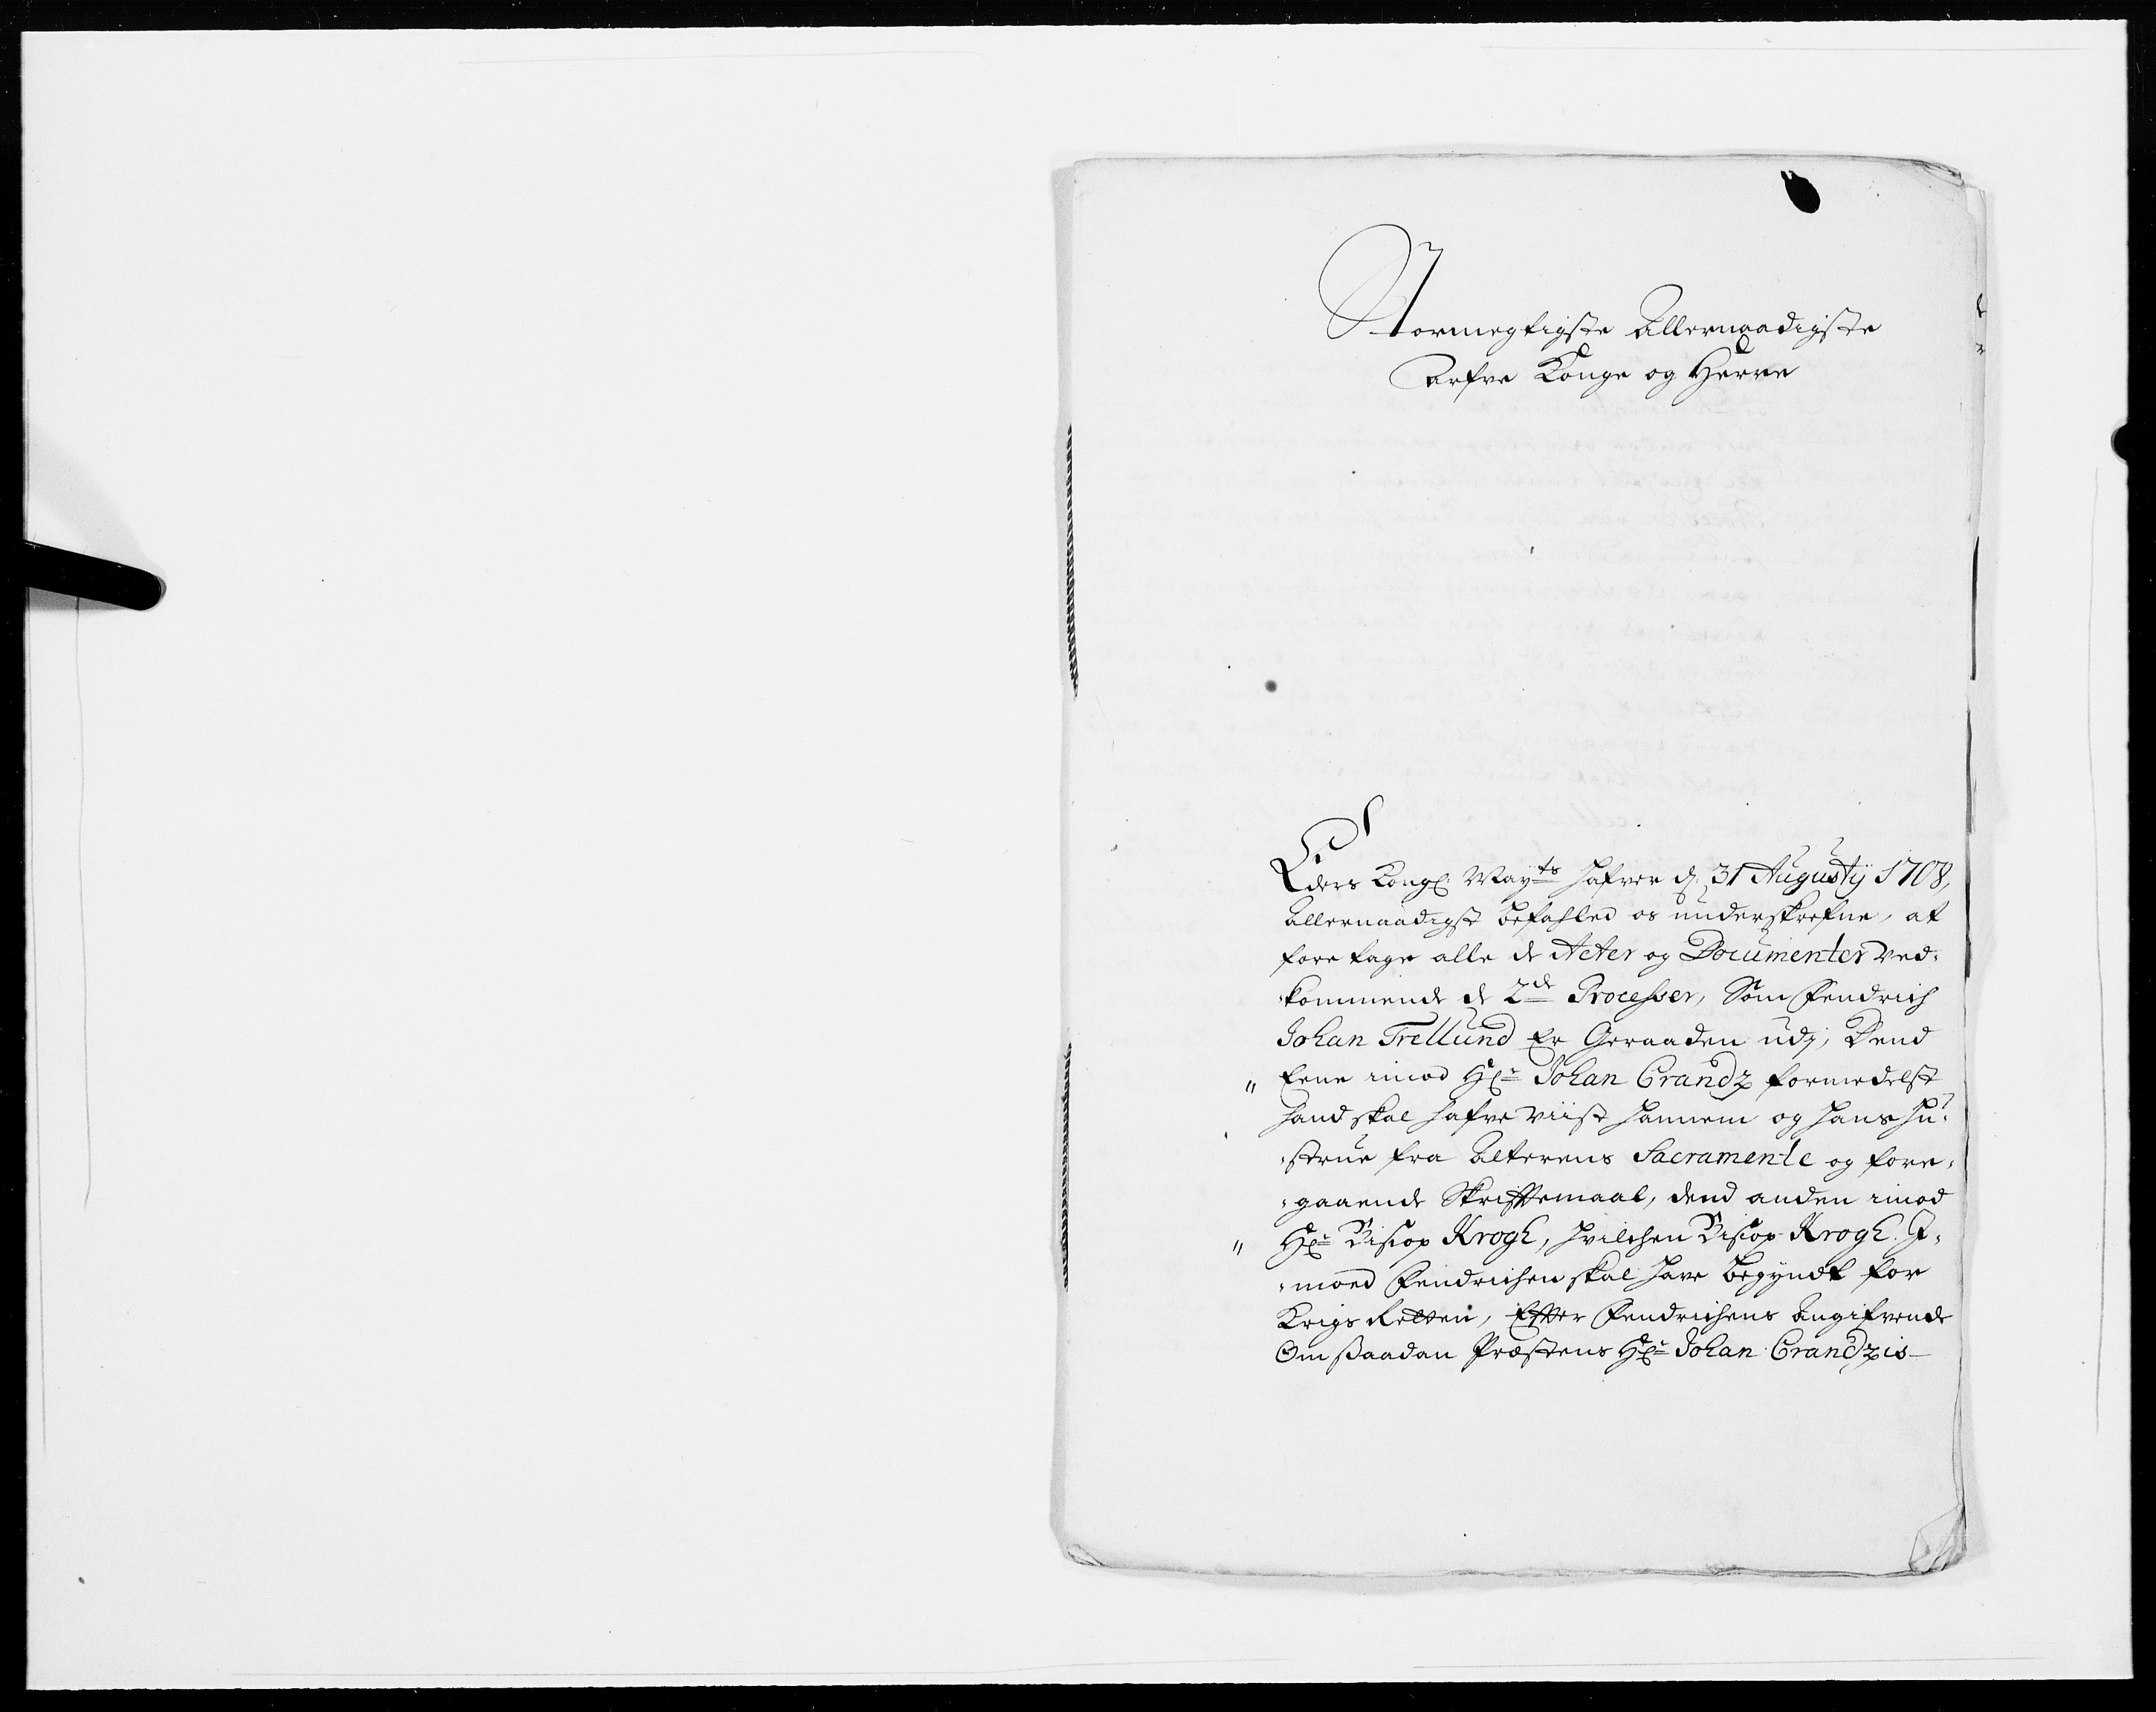 Stormegtigste Allernaadigste
Arfve Konge og Herre
Eders Kongl. Mayts hafver d. 31 Augustij 1708,
Allernaadigst befahled os underskrefne, at
foretage alle de Acter og Documenter ved-
kommende de 2de Processer, Som Fendrich
Johan Trellund Er Geraaden udj, Dend
" Eene imod Hr. Johan Crandz formedelst
hand skal hafve viist hannem og hans hu-
strue fra Alterens Sacramente og fore-
gaaende Skrifftemaal, dend anden imod
" Hr. Bisiop Krogh, hvilchen Bisiop Krogh I-
moed Fendrichen skal have begyndt for
Krigs Retten, Effter Fendrichens Angifvende
Om ßaadan Præstens Hr. Johan Crandzis